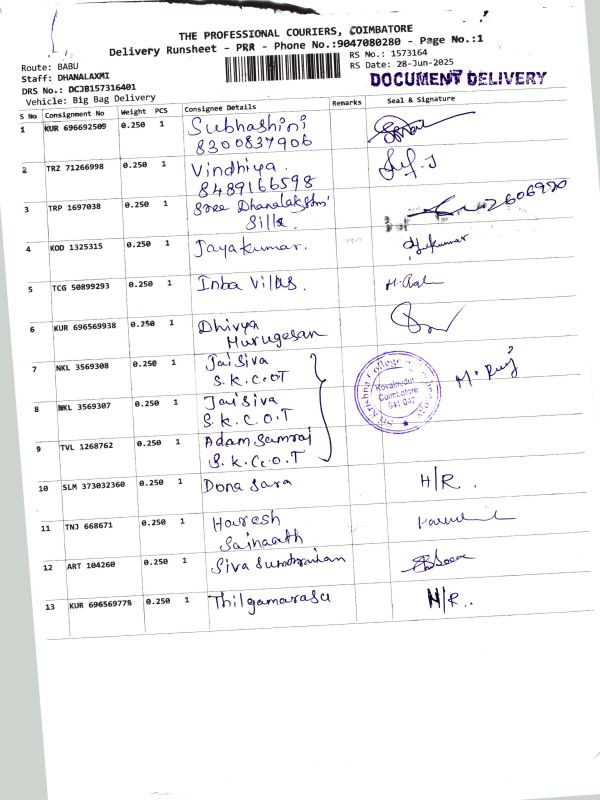 THE PROFESSIONAL COURIERS, COIMBATORE
Delivery Runsheet - PRR - Phone No.:9047080280 - Page No.:1
Route: BABU
Staff: DHANALAXMI
DRS No.: DCJB157316401
Vehicle: Big Bag Delivery
RS No.: 1573164
RS Date: 28-Jun-2025
DOCUMENT DELIVERY
S No Consignment No Weight PCS Consignee Details Remarks Seal & Signature
1 KUR 696692509 0.250 1 Subhashini
8300837906
2 TRZ 71266998 0.250 1 Vindhiya.
8489166598
3 TRP 1697038 0.250 1 Sree Dhanalakshmi
Silks.
4 KOD 1325315 0.250 1 Jayakumar. Jayakumar
5 TCG 50899293 0.250 1 Inba Vilas.
6 KUR 696569938 0.250 1 Dhivya
Murugesan
7 NKL 3569308 0.250 1 Jaisiva
S.K.C.OT
8 NKL 3569307 0.250 1 Jaisiva
S.K.C.O.T
9 TVL 1268762 0.250 1 Adam Samraj
S.K.C.O.T
Sri Krishna College
Kovaipudur
Coimbatore
641 042
10 SLM 373032360 0.250 1 Dona Sara H/R.
11 TNJ 668671 0.250 1 Haresh
Sainaath
12 ART 104260 0.250 1 Siva
13 KUR 696569778 0.250 1 Thilgamarasu N/R..